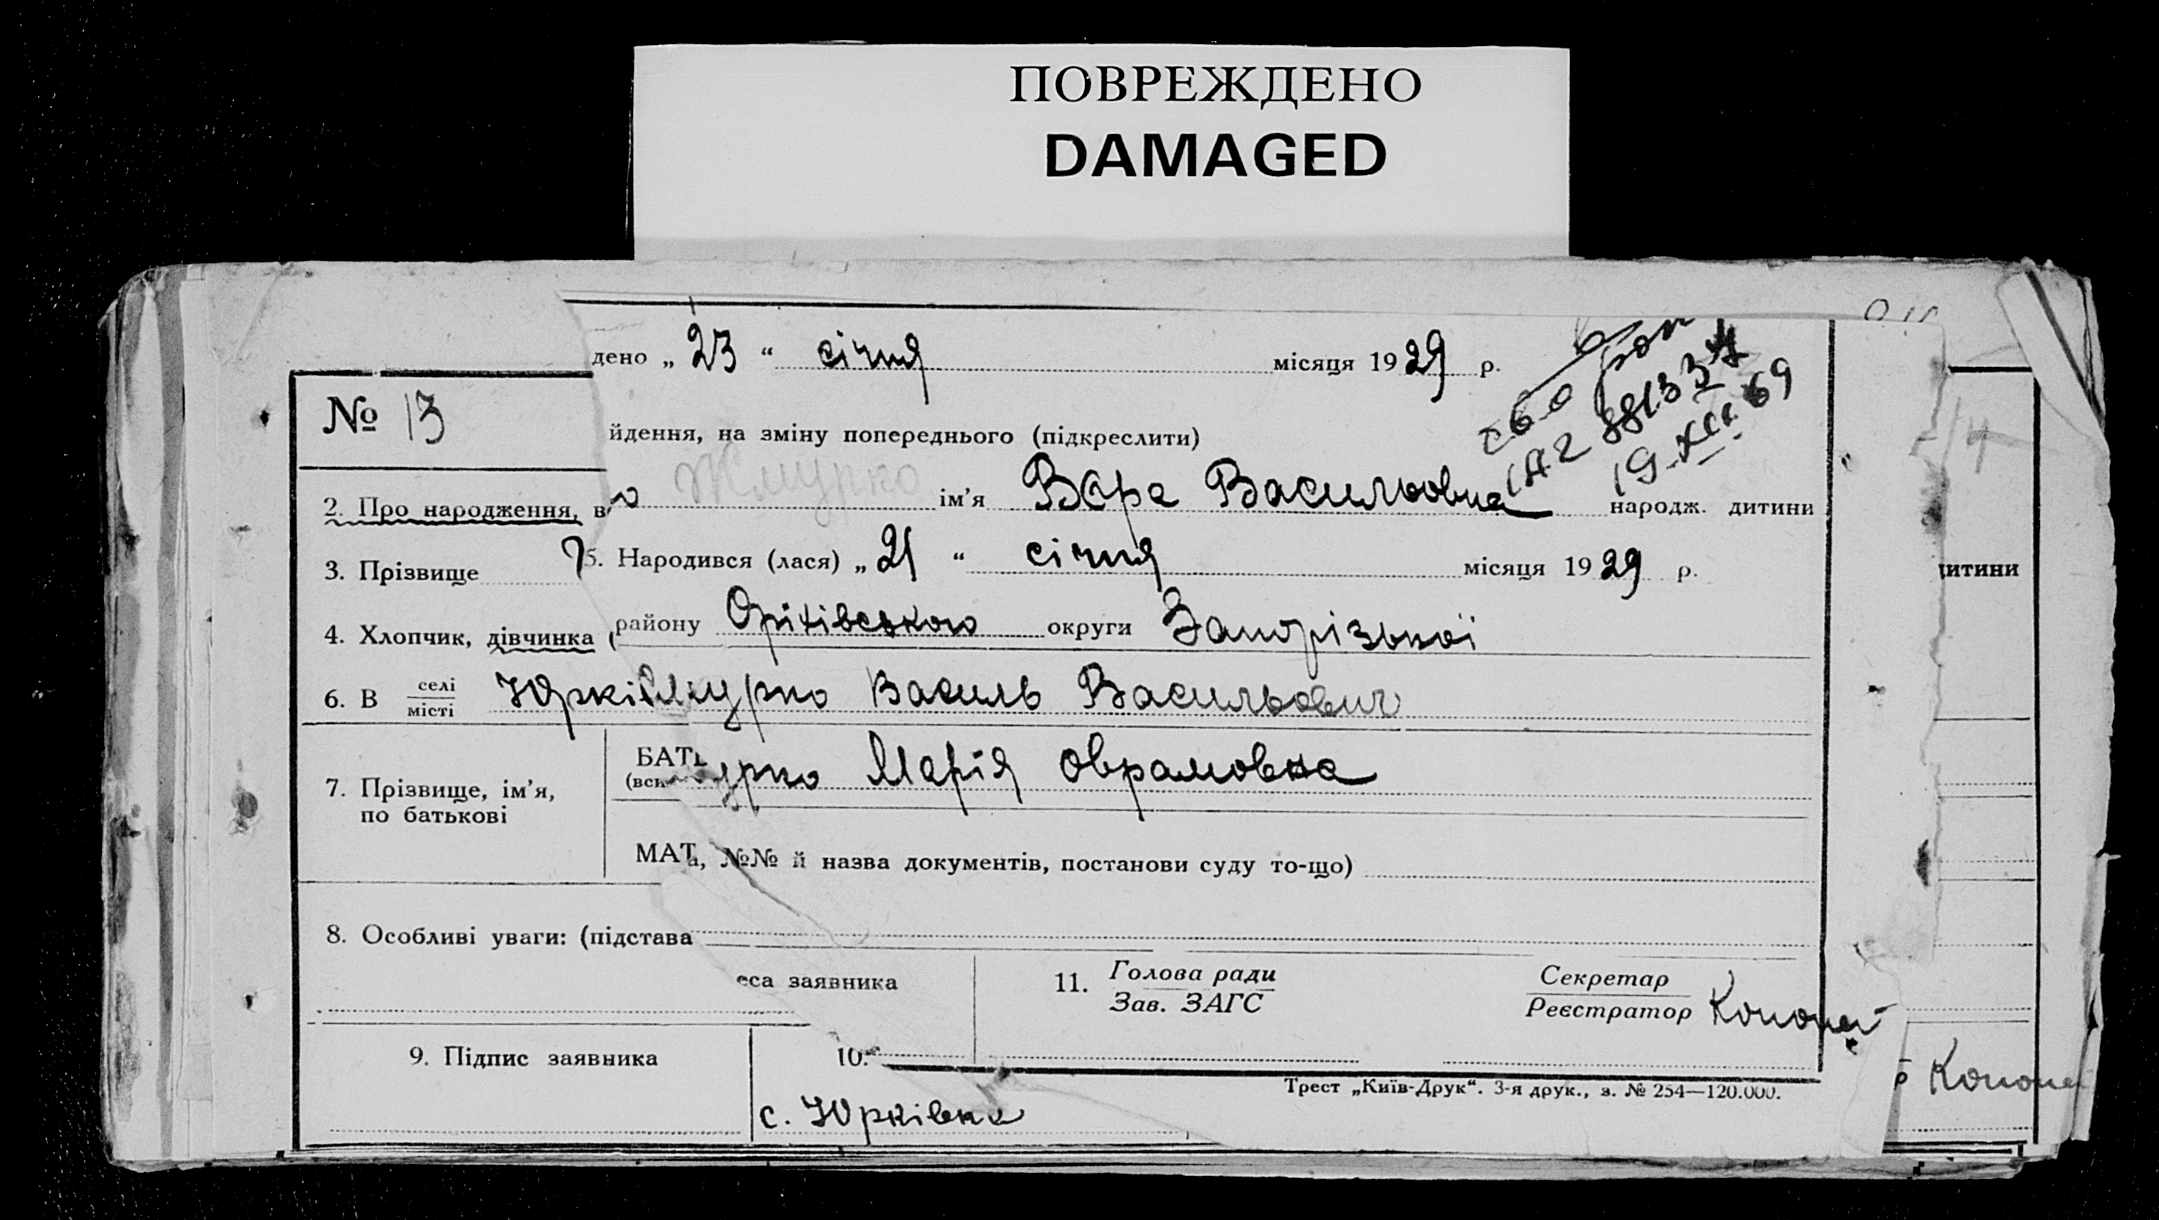 ПОВРЕЖДЕНО
DAMAGED
дено „ 23 “ січня місяця 1929 р.
№ 13
йдення, на зміну попереднього (підкреслити)
19.XII.69
2. Про народження, в
Жмурко ім'я Вєра Васильовна народж. дитини
3. Прізвище
5. Народився (лася) „ 21 “ січня місяця 1929 р.
итини
4. Хлопчик, дівчинка (
району Оріхівського округи Запорізької
6. В селі
місті
Юркі
мурко Василь Васильович
7. Прізвище, ім'я,
по батькові
БАТЬ
(вс
урко Марія Оврамовна
МАТ
, №№ й назва документів, постанови суду то-що)
8. Особливі уваги: (підстава
еса заявника
11. Голова ради
Зав. ЗАГС
Секретар
Реєстратор
9. Підпис заявника
10.
Трест „Київ-Друк“. 3-я друк., з. № 254—120.000.
с. Юрківка